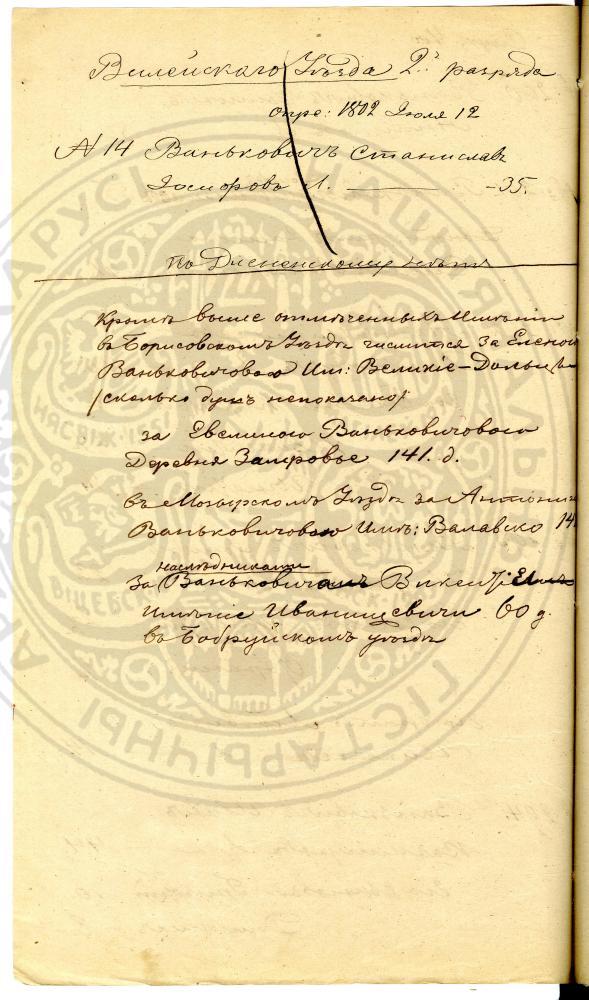 Вилейскаго Уѣзда 2ъ разряда
опре: 1802 Іюля 12
№ 14 Ваньковичъ Станиславъ
Іосифовъ Л. — -35.
по Дисненскому уѣзду
Кромѣ выше отмѣченныхъ имѣній
въ Борисовскомъ Уѣздѣ числится за Еленою
Ваньковичовою Им: Великіе-Дольцы
/сколько душъ непоказано/
за Евелиною Ваньковичовою
Деревня Замровье 141. д.
въ Мозырскомъ Уѣздѣ за Антони
Ваньковичовою Имѣ: Валавско 14
наслѣдниками
за Ваньковичамъ Викен
имѣніе Иванищевичи 60 д.
въ Бобруйскомъ уѣздѣ
БЕЛАРУСІ
НАЦЫЯНАЛЬНЫ
ГІСТАРЫЧНЫ
АРХІЎ